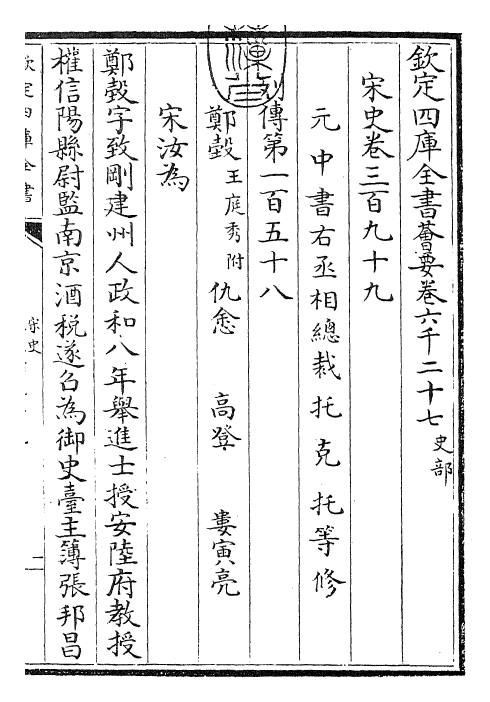 欽定四庫全書薈要卷六千二十七史部
宋史卷三百九十九
元中書右丞相總裁托克托等修
列傳第一百五十八
鄭瑴王庭秀附 仇悆 高登 婁寅亮
宋汝為
鄭瑴字致剛建州人政和八年舉進士授安陸府教授
權信陽縣尉監南京酒税遂召為御史臺主簿張邦昌
欽定四庫全書
宋史